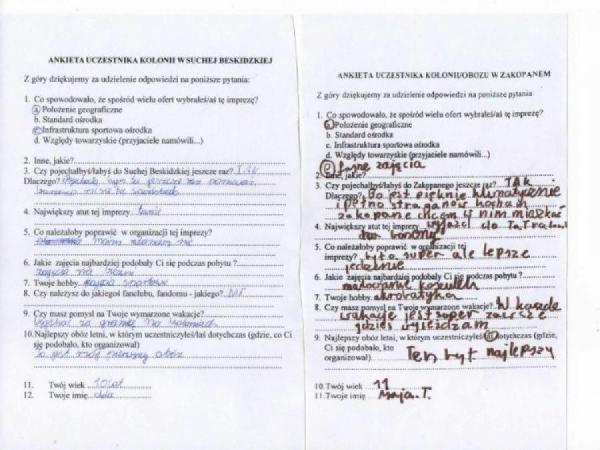 ANKIETA UCZESTNIKA KOLONII W SUCHEJ BESKIDZKIEJ
Z góry dziękujemy za udzielenie odpowiedzi na poniższe pytania:
1. Co spowodowało, że spośród wielu ofert wybrałeś/aś tę imprezę?
a Położenie geograficzne
b. Standard ośrodka
c Infrastruktura sportowa ośrodka
d. Względy towarzyskie (przyjaciele namówili...)
2. Inne, jakie?
3. Czy pojechałbyś/łabyś do Suchej Beskidzkiej jeszcze raz? TAK
Dlaczego?
4. Największy atut tej imprezy
5. Co należałoby poprawić w organizacji tej imprezy?
6. Jakie zajęcia najbardziej podobały Ci się podczas pobytu ?
zajęcia na
7. Twoje hobby zajęcia sportowe
8. Czy należysz do jakiegoś fanclubu, fandomu - jakiego? NIE
9. Czy masz pomysł na Twoje wymarzone wakacje?
10. Najlepszy obóz letni, w którym uczestniczyłeś/łaś dotychczas (gdzie, co Ci
się podobało, kto organizował)
to jest mój pierwszy obóz
11. Twój wiek 10 lat
12. Twoje imię
ANKIETA UCZESTNIKA KOLONII/OBOZU W ZAKOPANEM
Z góry dziękujemy za udzielenie odpowiedzi na poniższe pytania:
1. Co spowodowało, że spośród wielu ofert wybrałeś/aś tę imprezę?
a Położenie geograficzne
b. Standard ośrodka
c. Infrastruktura sportowa ośrodka
d. Względy towarzyskie (przyjaciele namówili...)
e fajne zajęcia
2. Inne, jakie?
3. Czy pojechałbyś/łabyś do Zakopanego jeszcze raz? TAK
Dlaczego? bo jest pięknie klimatycznie
i pełno straganów kocham
zakopane chcem w nim mieszkać
4. Największy atut tej imprezy wyjazd do Tatralandi
5. Co należałoby poprawić w organizacji tej
imprezy? było super ale lepsze
jedzenie
6. Jakie zajęcia najbardziej podobały Ci się podczas pobytu ?
malowanie koszulek
7. Twoje hobby akrobatyka
8. Czy masz pomysł na Twoje wymarzone wakacje? W każde
wakacje jest super zawsze
gdzieś wyjeżdżam
9. Najlepszy obóz letni, w którym uczestniczyłeś/łaś dotychczas (gdzie,
co Ci się podobało, kto
organizował) Ten był najlepszy
10. Twój wiek 11
11. Twoje imię Maja.T.